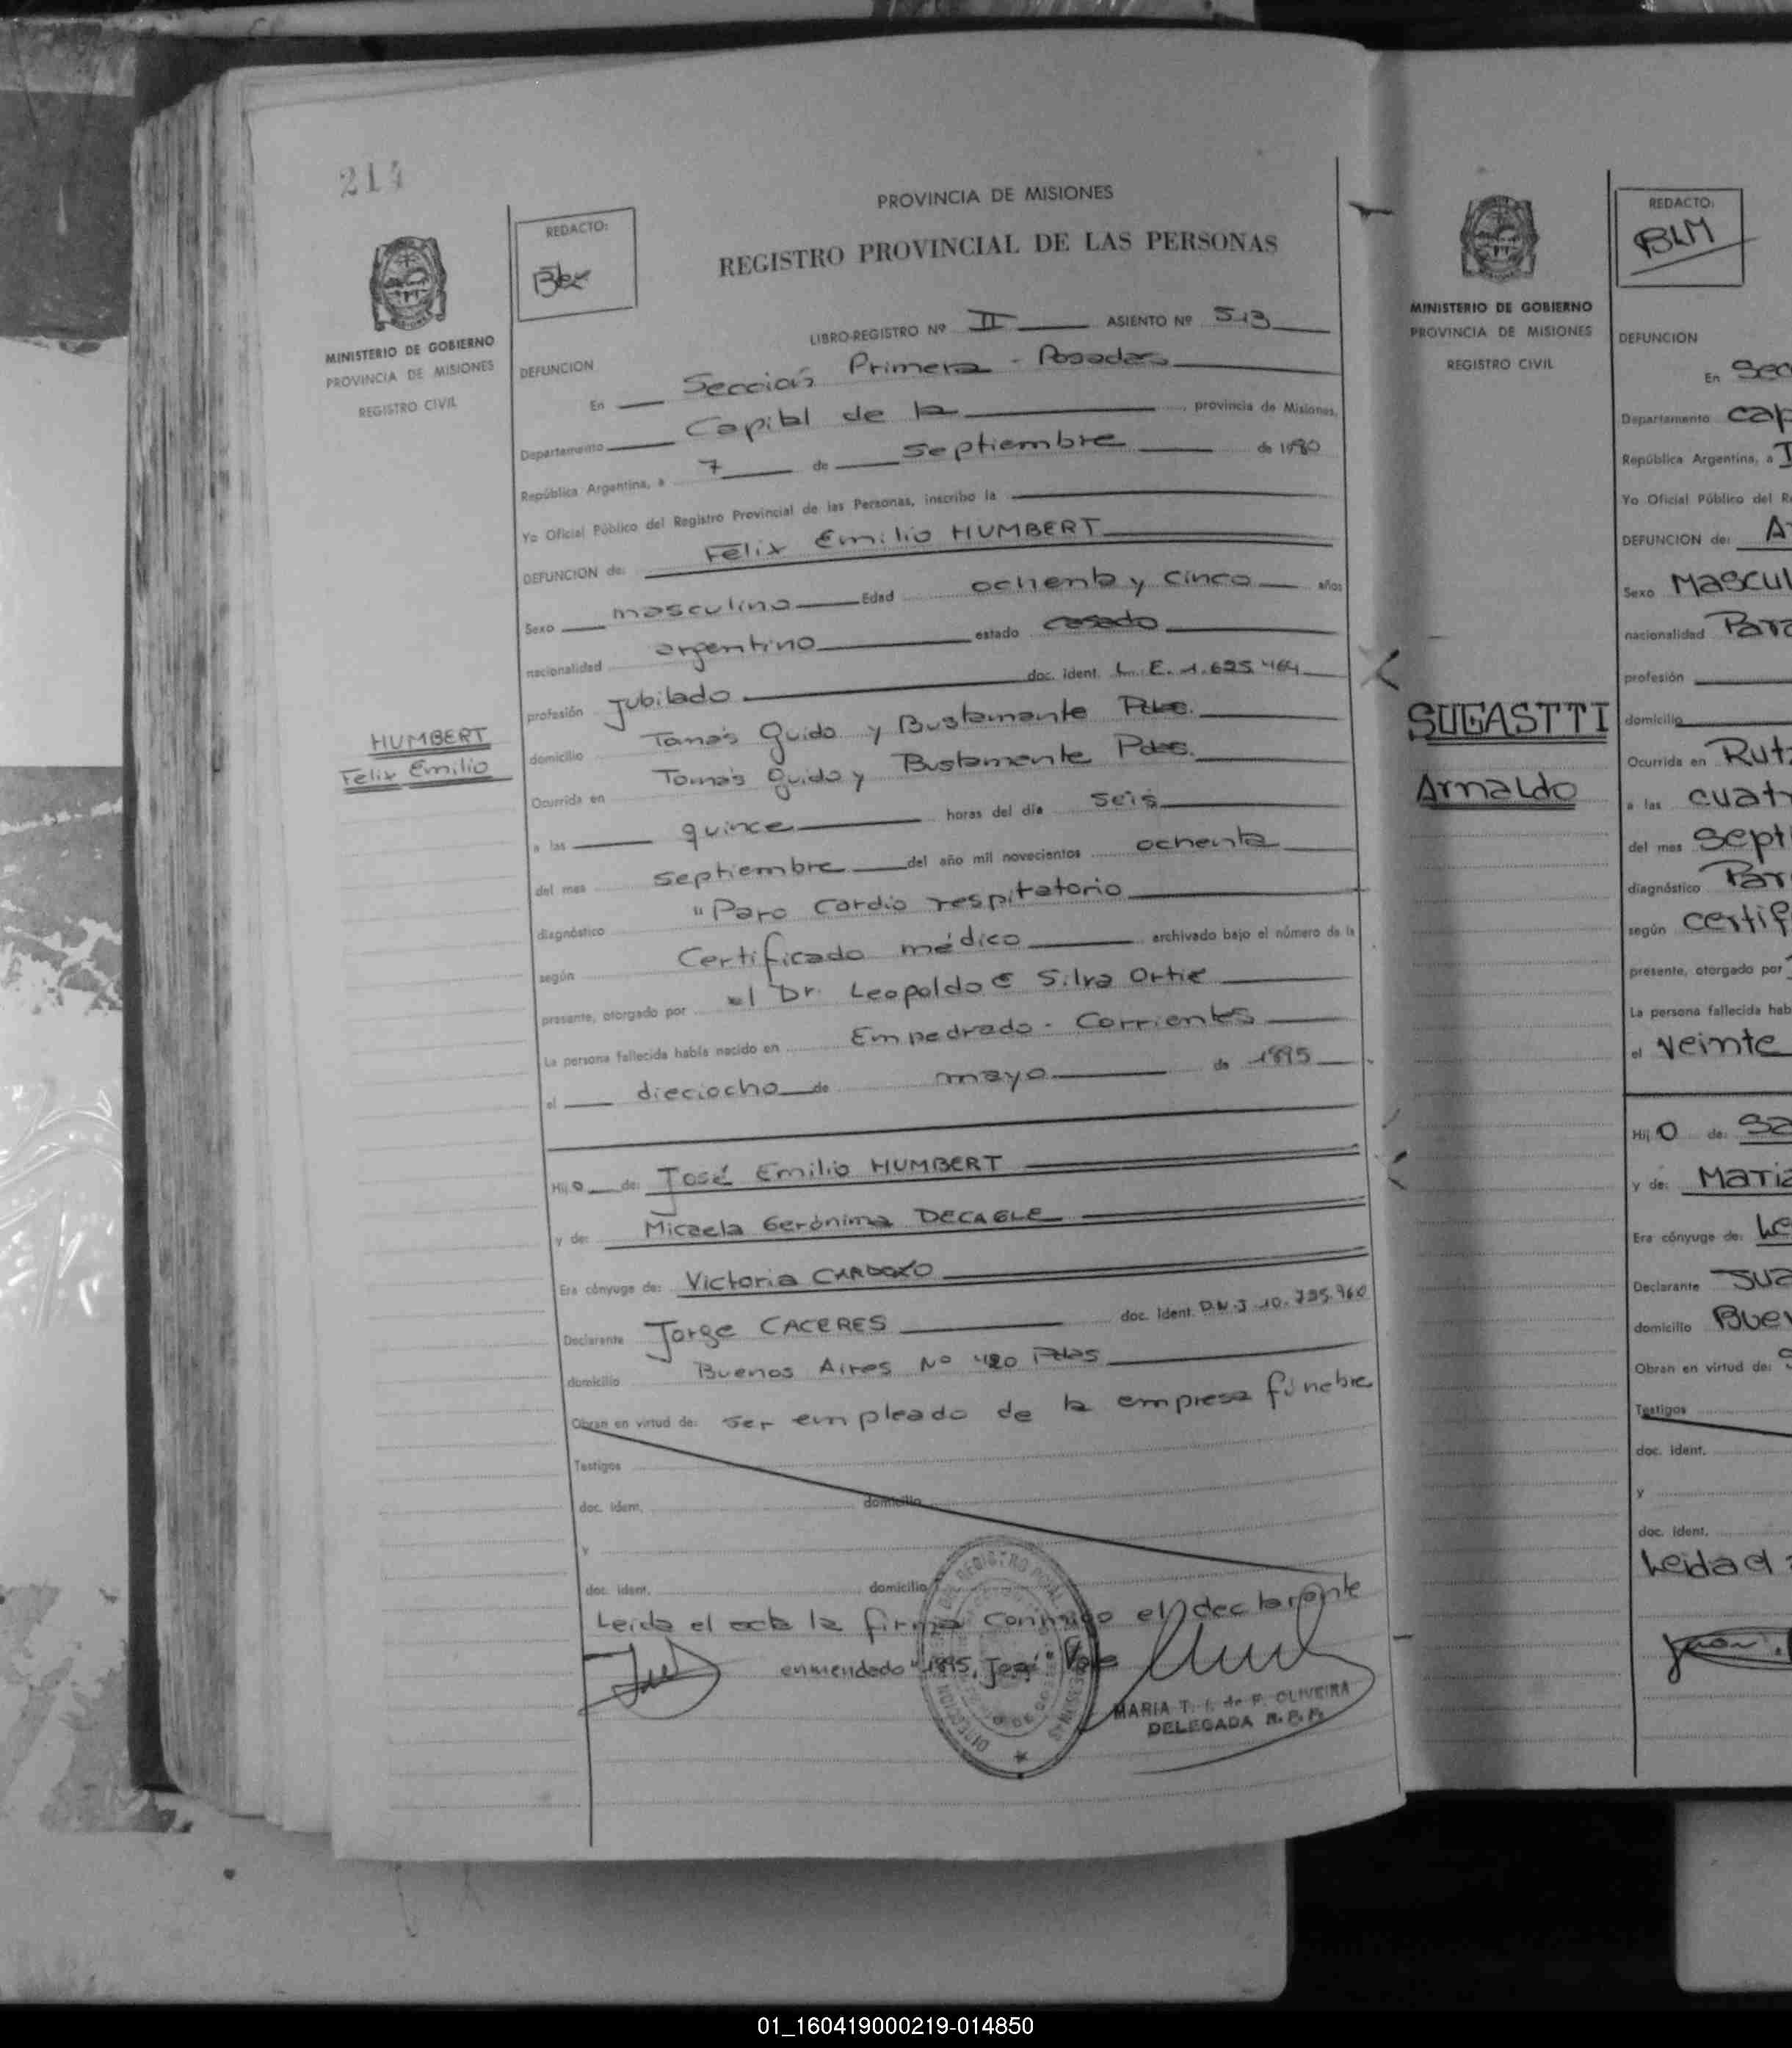 214
PROVINCIA DE MISIONES
REGISTRO PROVINCIAL DE LAS PERSONAS
REDACTO:
MINISTERIO DE GOBIERNO
PROVINCIA DE MISIONES
REGISTRO CIVIL
LIBRO-REGISTRO Nº II ASIENTO Nº 513
DEFUNCION
En Sección Primera - Posadas
Departamento Capital de la provincia de Misiones,
República Argentina, a 7 de septiembre de 1980
Yo Oficial Público del Registro Provincial de las Personas, inscribo la
DEFUNCION de: Félix Emilio HUMBERT
Sexo masculino Edad ochenta y cinco años
nacionalidad argentino estado casado
profesión Jubilado doc. ident. L.E. 1.625.464
HUMBERT
Felix Emilio
domicilio Tomás Guido y Bustamante Pdas.
Ocurrida en Tomás Guido y Bustamente Pdas.
a las quince horas del día seis
del mes septiembre del año mil novecientos ochenta
diagnóstico "Paro Cardio respiratorio
según Certificado médico archivado bajo el número de la
presente, otorgado por el Dr. Leopoldo E Silva Ortiz
La persona fallecida había nacido en Empedrado - Corrientes
el dieciocho de mayo de 1895
Hijo de: José Emilio HUMBERT
y de: Micaela Gerónima DECAGLE
Era cónyuge de: Victoria CARDOZO
Declarante Jorge CACERES doc. ident. D.N.I 10.795.960
domicilio Buenos Aires Nº 420 Pdas
Obran en virtud de: ser empleado de la empresa fúnebre
Testigos
doc. ident. domicilio
y
doc. ident. domicilio
Leida el acta la firma conmigo el declarante
enmendado "1895, José" Vale
MARIA T. I. de F. OLIVEIRA
DELEGADA R.P.P.
REDACTO:
BLM
MINISTERIO DE GOBIERNO
PROVINCIA DE MISIONES
REGISTRO CIVIL
DEFUNCION
En Sec
Departamento Cap
República Argentina, a
Yo Oficial Público del R
DEFUNCION de: A
Sexo Mascul
nacionalidad Para
profesión
SUGASTTI
Arnaldo
domicilio
Ocurrida en Ruta
a las cuatr
del mes Septi
diagnóstico Par
según certif
presente, otorgado por
La persona fallecida hab
el veinte
Hijo de: Sa
y de: Maria
Era cónyuge de: Le
Declarante Jua
domicilio Buen
Obran en virtud de: S
Testigos
doc. ident.
y
doc. ident.
Leida el a
01_160419000219-014850